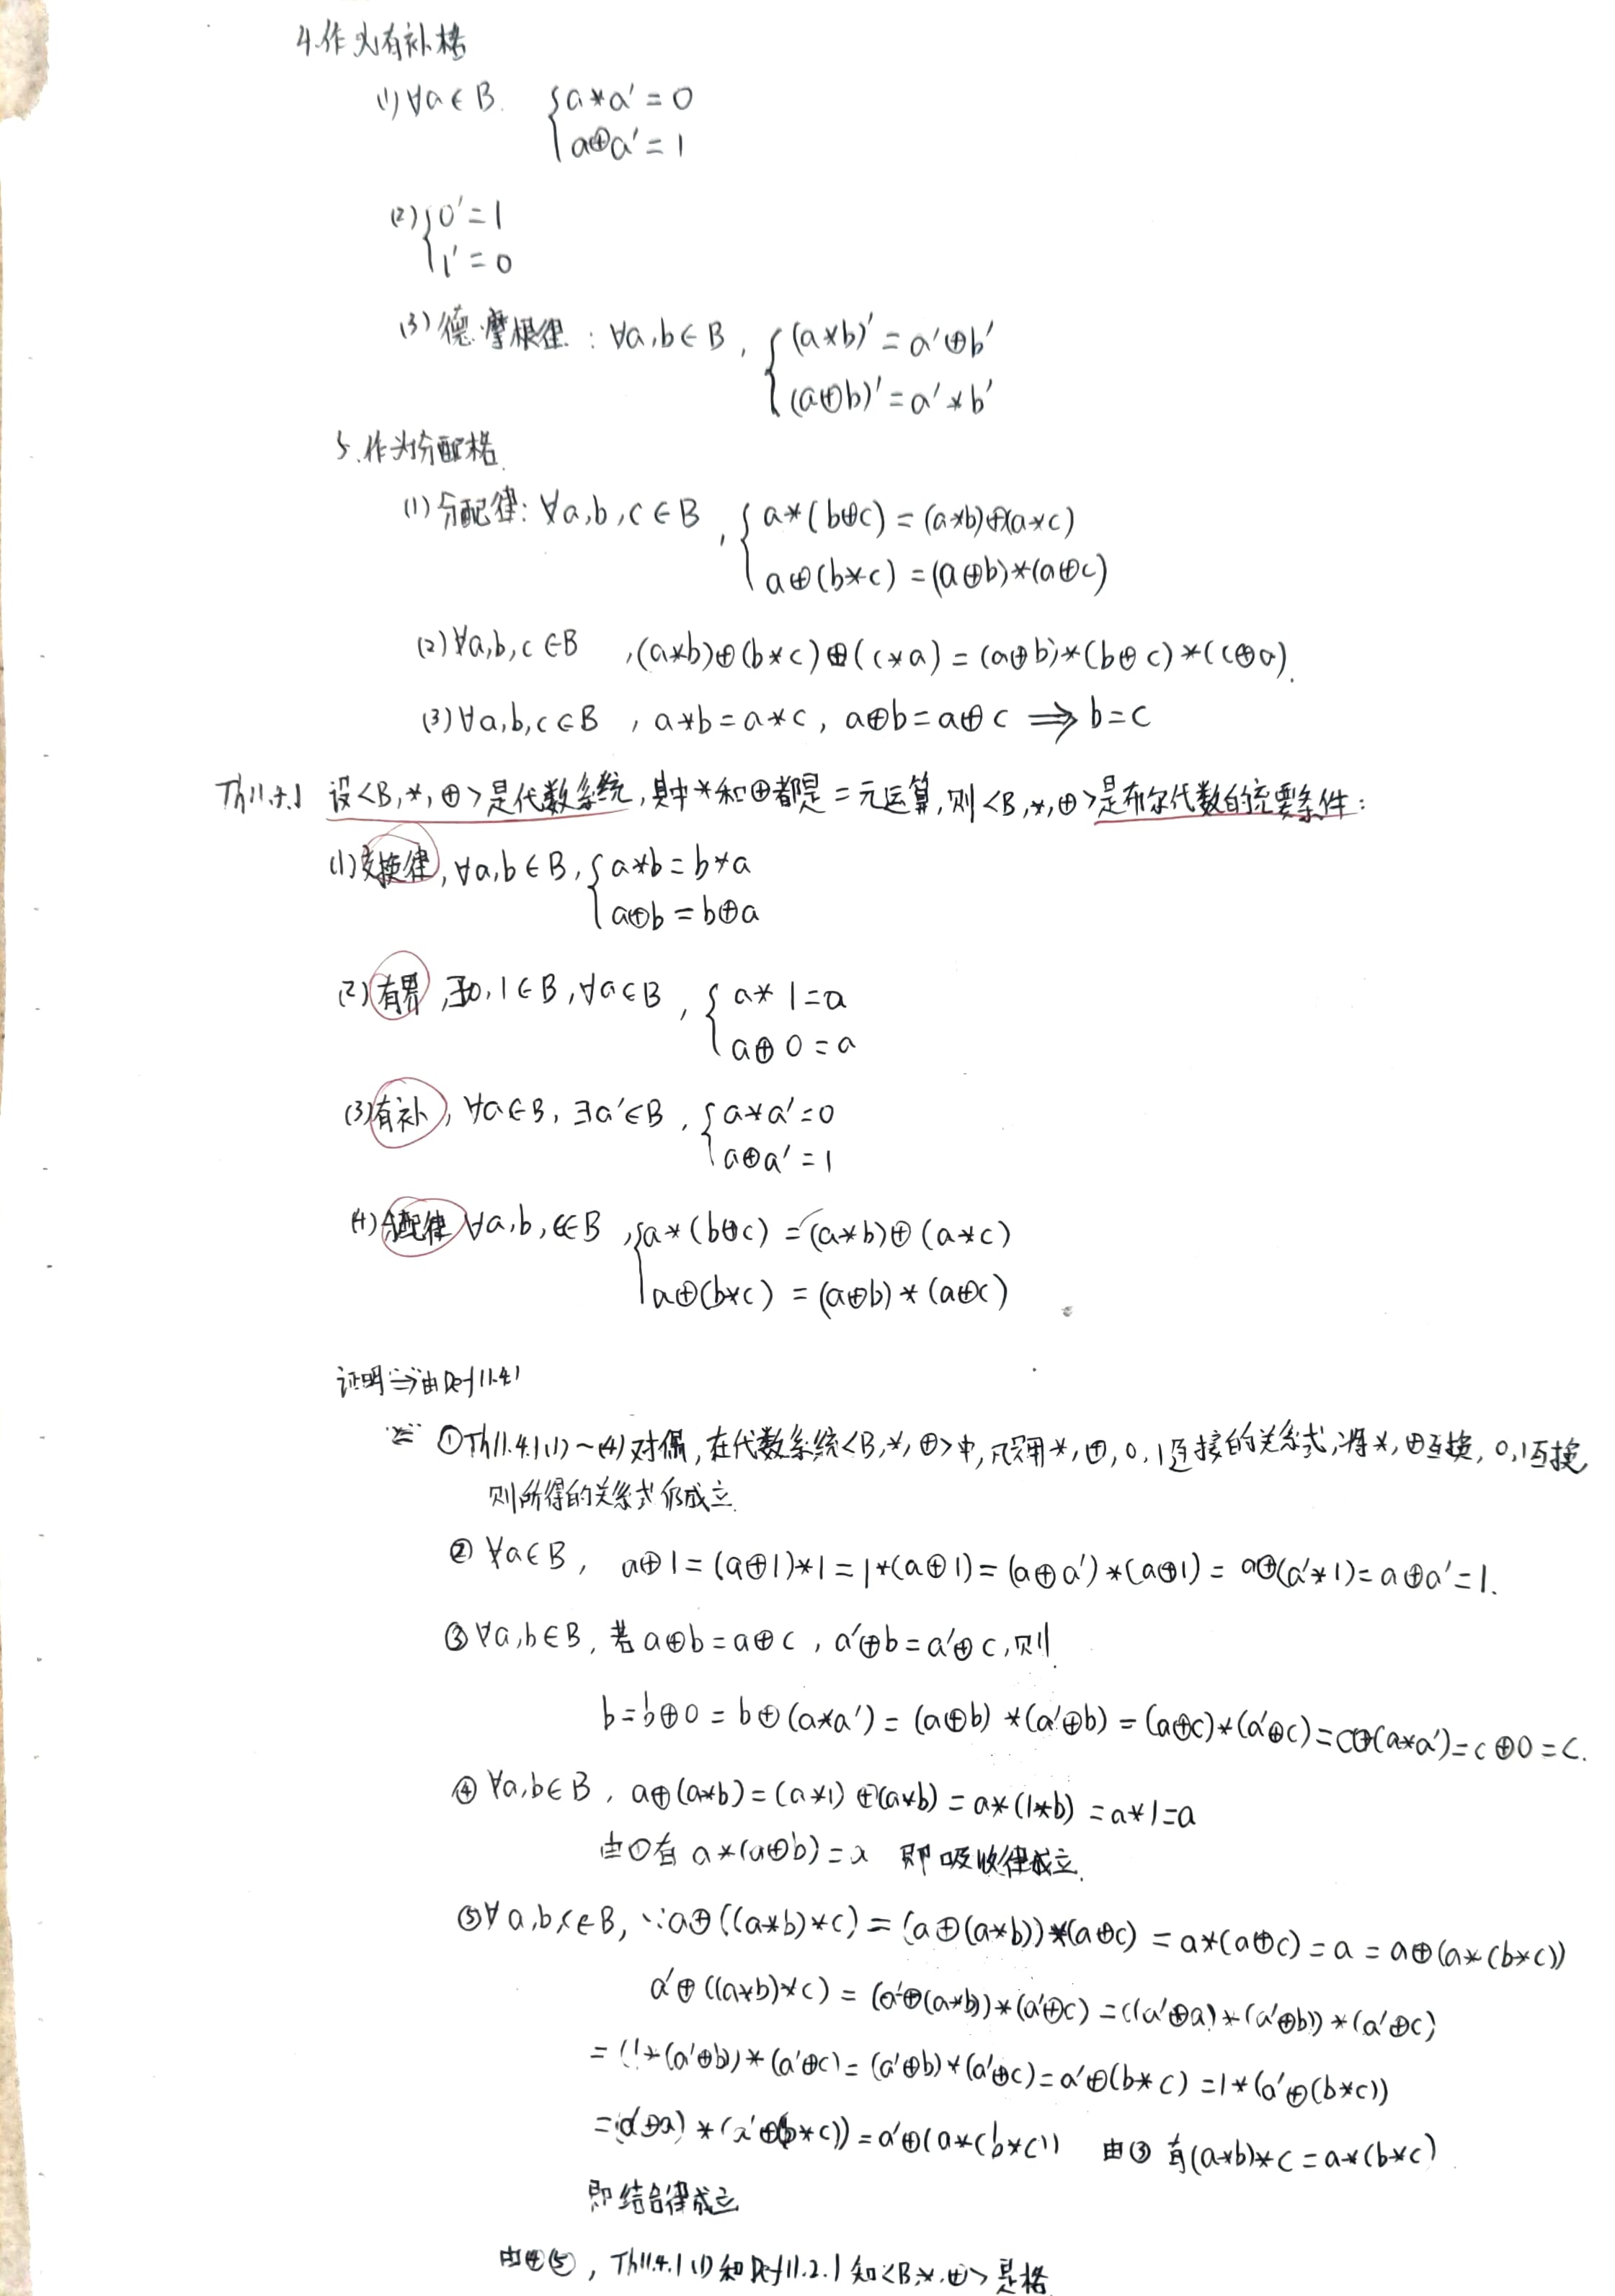 4.作为有补格
(1) ∀a∈B. { a*a′=0
a⊕a′=1
(2) { 0′=1
1′=0
(3) 德·摩根律：∀a,b∈B, { (a*b)′=a′⊕b′
(a⊕b)′=a′*b′
5.作为分配格.
(1) 分配律: ∀a,b,c∈B, { a*(b⊕c)=(a*b)⊕(a*c)
a⊕(b*c)=(a⊕b)*(a⊕c)
(2) ∀a,b,c∈B ,(a*b)⊕(b*c)⊕(c*a)=(a⊕b)*(b⊕c)*(c⊕a).
(3) ∀a,b,c∈B , a*b=a*c, a⊕b=a⊕c ⟹ b=c
Th11.4.1 设<B,*,⊕>是代数系统,其中*和⊕都是二元运算,则<B,*,⊕>是布尔代数的充要条件:
(1)交换律,∀a,b∈B, { a*b=b*a
a⊕b=b⊕a
(2)有界,∃0,1∈B,∀a∈B, { a*1=a
a⊕0=a
(3)有补, ∀a∈B, ∃a′∈B, { a*a′=0
a⊕a′=1
(4)分配律 ∀a,b,c∈B, { a*(b⊕c)=(a*b)⊕(a*c)
a⊕(b*c)=(a⊕b)*(a⊕c)
证明"⇒"由Def11.4.1
"⇐" ①Th11.4.1(1)~(4)对偶,在代数系统<B,*,⊕>中,凡用*,⊕,0,1连接的关系式,将*,⊕互换,0,1互换
则所得的关系式仍成立.
② ∀a∈B, a⊕1=(a⊕1)*1=1*(a⊕1)=(a⊕a′)*(a⊕1)=a⊕(a′*1)=a⊕a′=1.
③ ∀a,b∈B,若a⊕b=a⊕c, a′⊕b=a′⊕c,则
b=b⊕0=b⊕(a*a′)=(a⊕b)*(a′⊕b)=(a⊕c)*(a′⊕c)=c⊕(a*a′)=c⊕0=c.
④ ∀a,b∈B, a⊕(a*b)=(a*1)⊕(a*b)=a*(1*b)=a*1=a
由①有 a*(a⊕b)=a 即吸收律成立.
⑤∀a,b,c∈B, ∵a⊕((a*b)*c)=(a⊕(a*b))*(a⊕c)=a*(a⊕c)=a=a⊕(a*(b*c))
a′⊕((a*b)*c)=(a′⊕(a*b))*(a′⊕c)=((a′⊕a)*(a′⊕b))*(a′⊕c)
=(1*(a′⊕b))*(a′⊕c)=(a′⊕b)*(a′⊕c)=a′⊕(b*c)=1*(a′⊕(b*c))
=(a′⊕a)*(a′⊕(b*c))=a′⊕(a*(b*c)) 由③ 有(a*b)*c=a*(b*c)
即结合律成立
由④⑤, Th11.4.1(1)和Def11.2.1知<B,*,⊕>是格